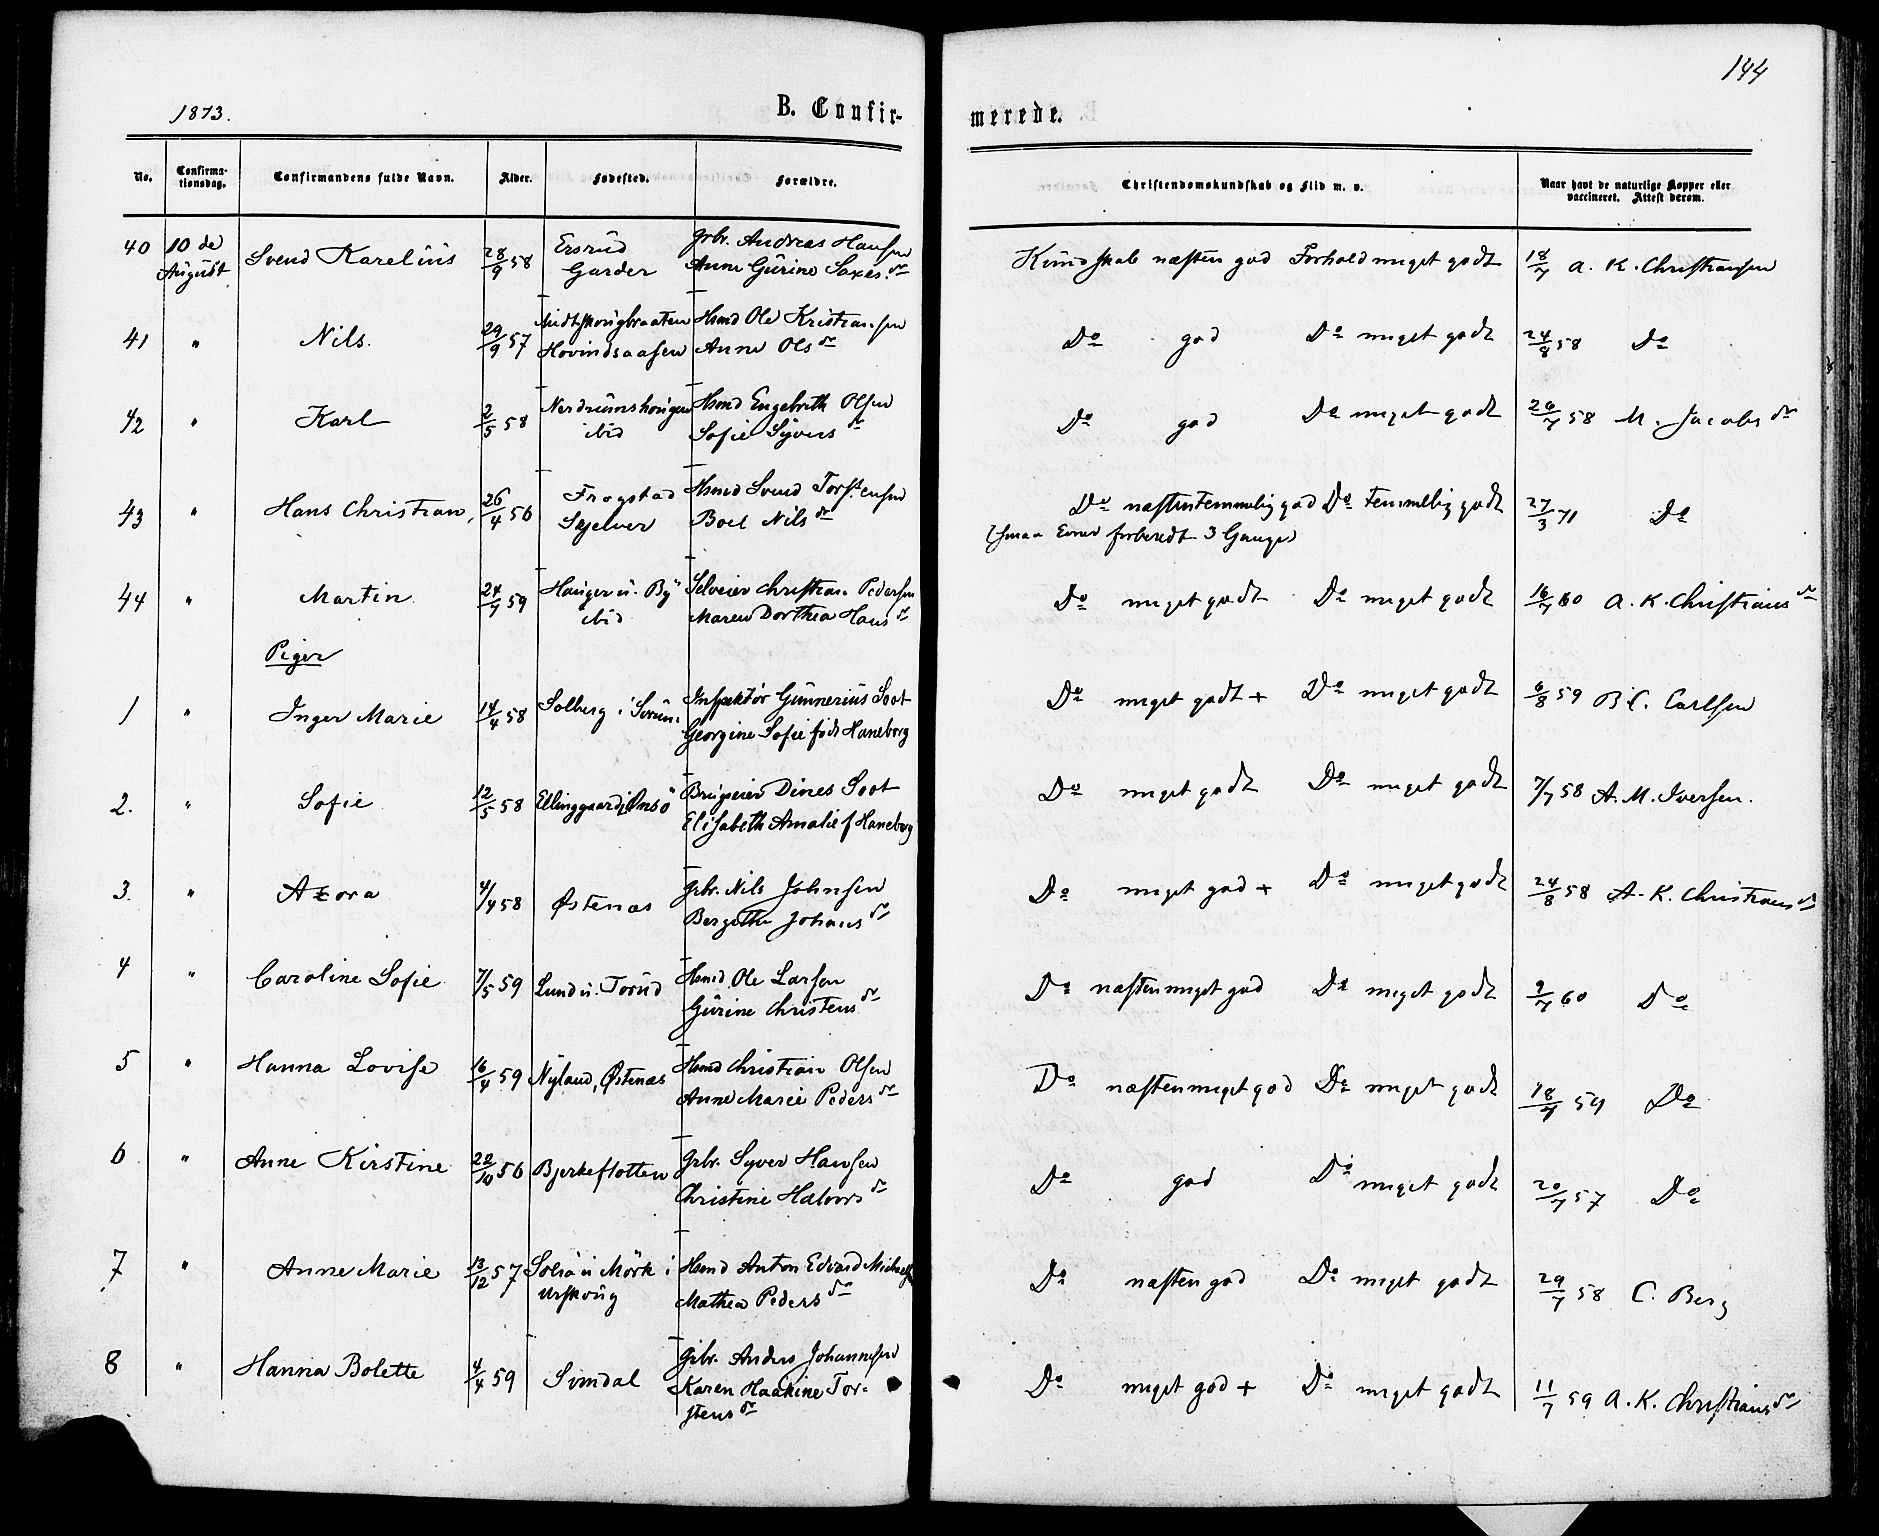 144
1873.
B. Confir-
merede.
No.
Confirma-
tionsdag.
Confirmandens fulde Navn.
Alder.
Fødested.
Forældre.
Christendomskundskab og Flid m. v.
Naar havt de naturlige Kopper eller
vaccineret. Attest derom.
40 10de August Svend Karelius 28/9 58 Ersrud Garder Grbr. Andreas Hansen Anne Gurine Saxesdr Kundskab næsten god Forhold meget godt 18/7 A. K. Christiansen
41 " Nils. 29/9 57 Midtskougbraaten Hovindsaasen Hsmd Ole Kristiansen Anne Olsdr Do god Do meget godt 24/8 58 Do
42 " Karl 2/5 58 Nerdrumskougen ibid Hsmd Engebreth Olsen Sofie Syversdr Do god Do meget godt 26/7 58 M. Jacobsdr
43 " Hans Christian, 26/4 56 Frogstad Skjelver Hsmd Svend Torstensen Boel Nilsdr Do næsten temmelig god Do temmelig godt 27/3 71 Do
(smaa Evner forberedt 3 Gange)
44 " Martin 24/9 59 Hauger u. By ibid Selveier Christian Pedersen Maren Dorthea Hansdr Do meget godt Do meget godt 16/7 60 A. K. Christiansdr
Piger
1 " Inger Marie 14/4 58 Solberg i Sørum. Inspektør Gunnerius Soot Georgine Sofie født Haneborg Do meget godt + Do meget godt 6/8 59 B. C. Carlsen
2. " Sofie 12/5 58 Ellinggaard i Onsö Brugseier Dines Soot Elisabeth Amalie f Haneborg Do meget godt Do meget godt 7/7 58 A. M. Iversen.
3. " Azora 4/4 58 Østenæs Grbr. Nils Johnsen Bergithe Johansdr Do meget god + Do meget godt 24/8 58 A. K. Christiansdr
4 " Caroline Sofie 7/5 59 Lund u. Torud Hsmd Ole Larsen Gurine Christensdr Do næsten meget god Do meget godt 9/7 60 Do
5 " Hanna Lovise 16/4 59 Nyland, Østenæs Hsmd Christian Olsen Anne Marie Pedersdr Do næsten meget god Do meget godt 18/7 59 Do
6 " Anne Kirstine 22/10 56 Bjerkeflotten Grbr. Syver Hansen Christine Halvorsdr Do god Do meget godt 20/7 57 Do
7 " Anne Marie 13/12 57 u Mörk i Urskoug Hsmd Anton Edvard Mathea Pedersdr Do næsten god Do meget godt 29/7 58 C. Berg
8 " Hanna Bolette 4/4 59 Svindal Grbr. Anders Johannesen Karen Haakine Tor-
stensdr Do meget god + Do meget godt 11/7 59 A. K. Christiansdr